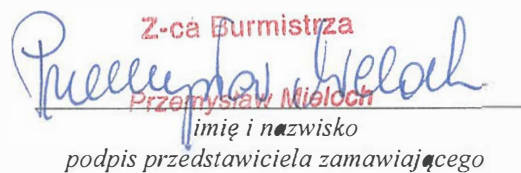 Z-ca Burmistrza
Przemysław Mieloch
Przemysław Mieloch
imię i nazwisko
podpis przedstawiciela zamawiającego